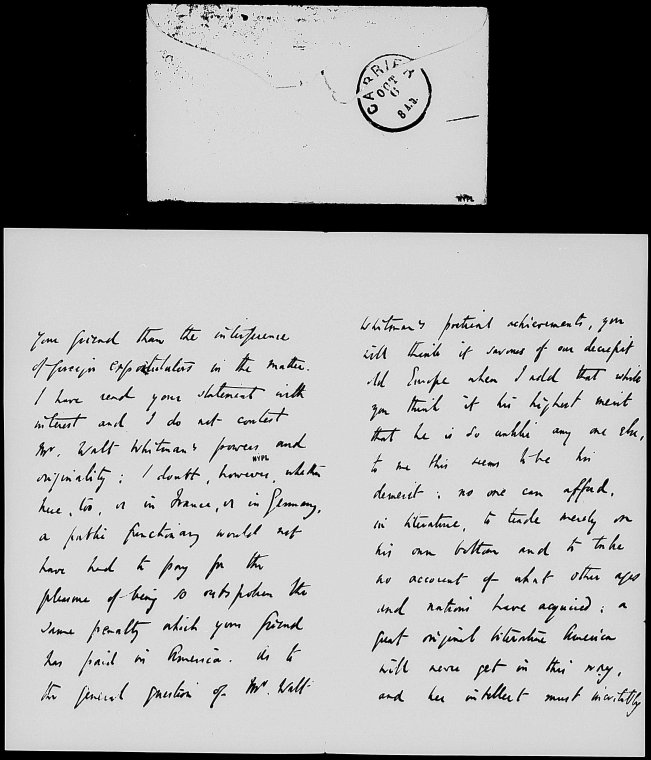 CARRIER
OCT
6
8 A.M.
NYPL
your friend than the interference
of foreign expostulators in the matter.
I have read your statement with
interest and I do not contest
Mr. Walt Whitman's powers and
NYPL
originality: I doubt, however, whether
here, too, or in France, or in Germany,
a public functionary would not
have had to pay for the
pleasure of being so outspoken the
same penalty which your friend
has paid in America. As to
the general question of Mr. Walt
Whitman's poetical achievements, you
will think it savours of our decrepit
old Europe when I add that while
you think it his highest merit
that he is so unlike any one else,
to me this seems to be his
demerit: no one can afford,
in literature, to trade merely on
his own bottom and to take
no account of what other ages
and nations have acquired: a
great original literature America
will never get in this way,
and her intellect must inevitably